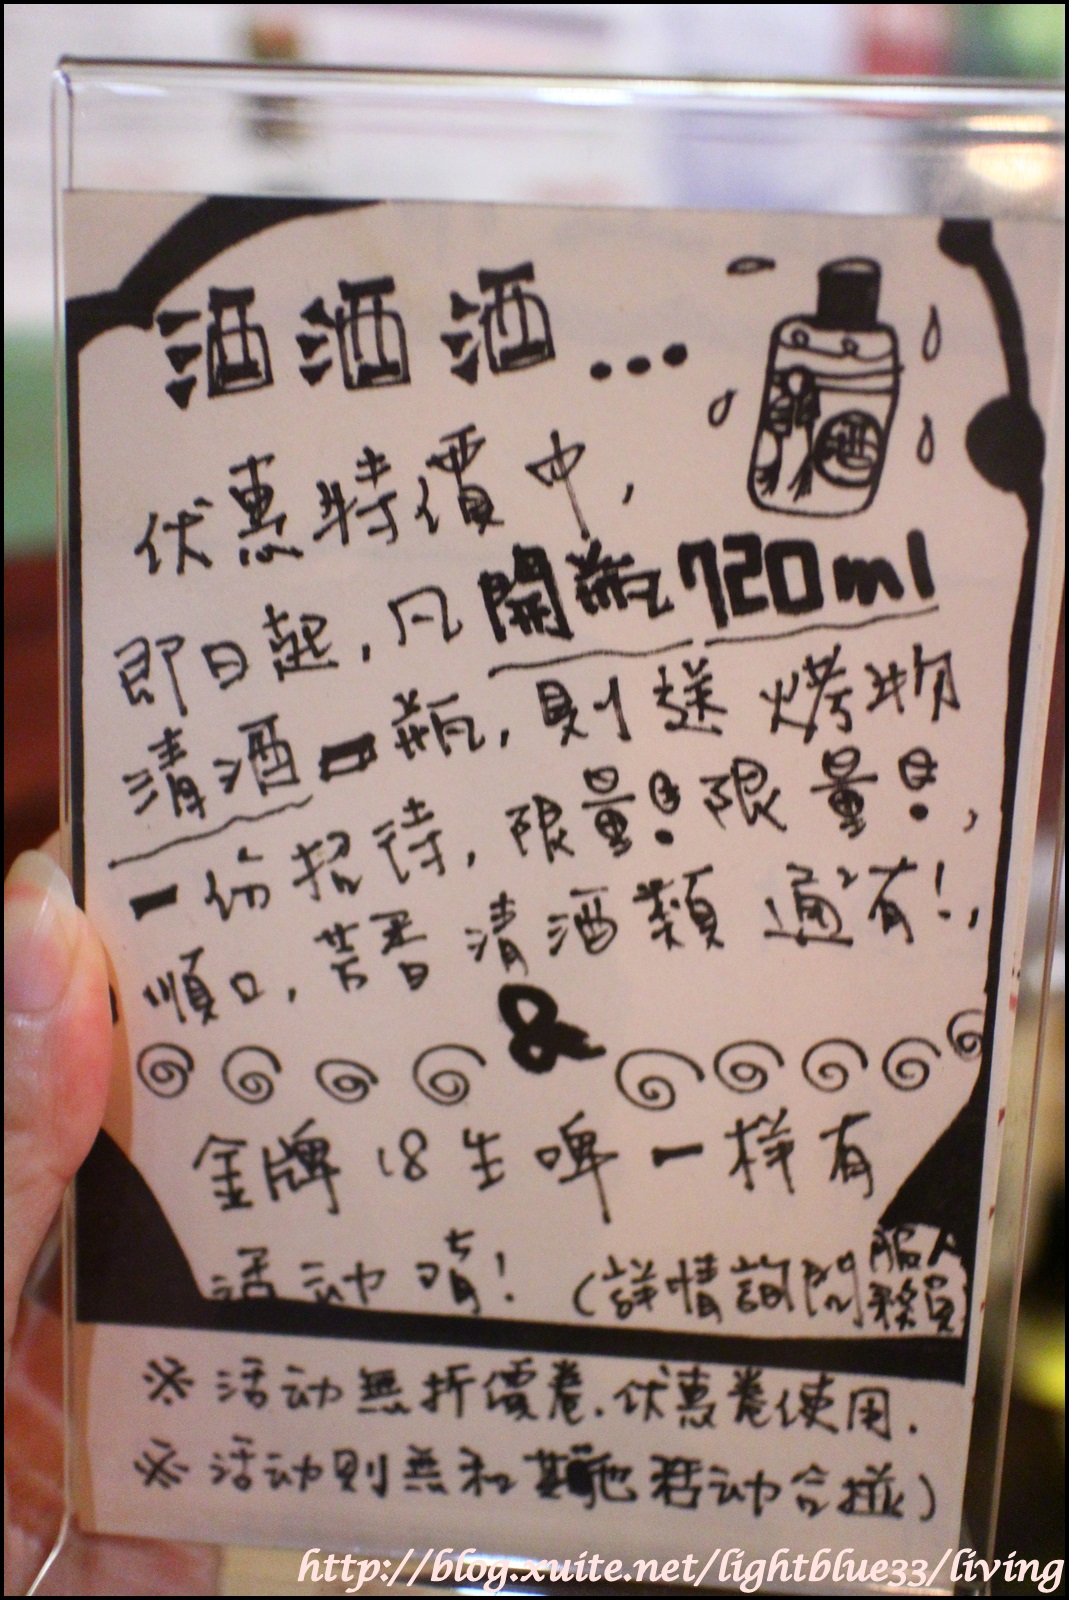 酒酒酒...
酒
伏惠特價中,
即日起,凡開瓶720ml
清酒一瓶,則送烤物
一份招待,限量!限量!,
順口,芳香清酒類通有!,
&
金牌18生啤一样有
活动唷!(詳情詢問服務人員
※活动無折價卷.伏惠卷使用.
※活动則無和其他活动合併)
http://blog.xuite.net/lightblue33/living